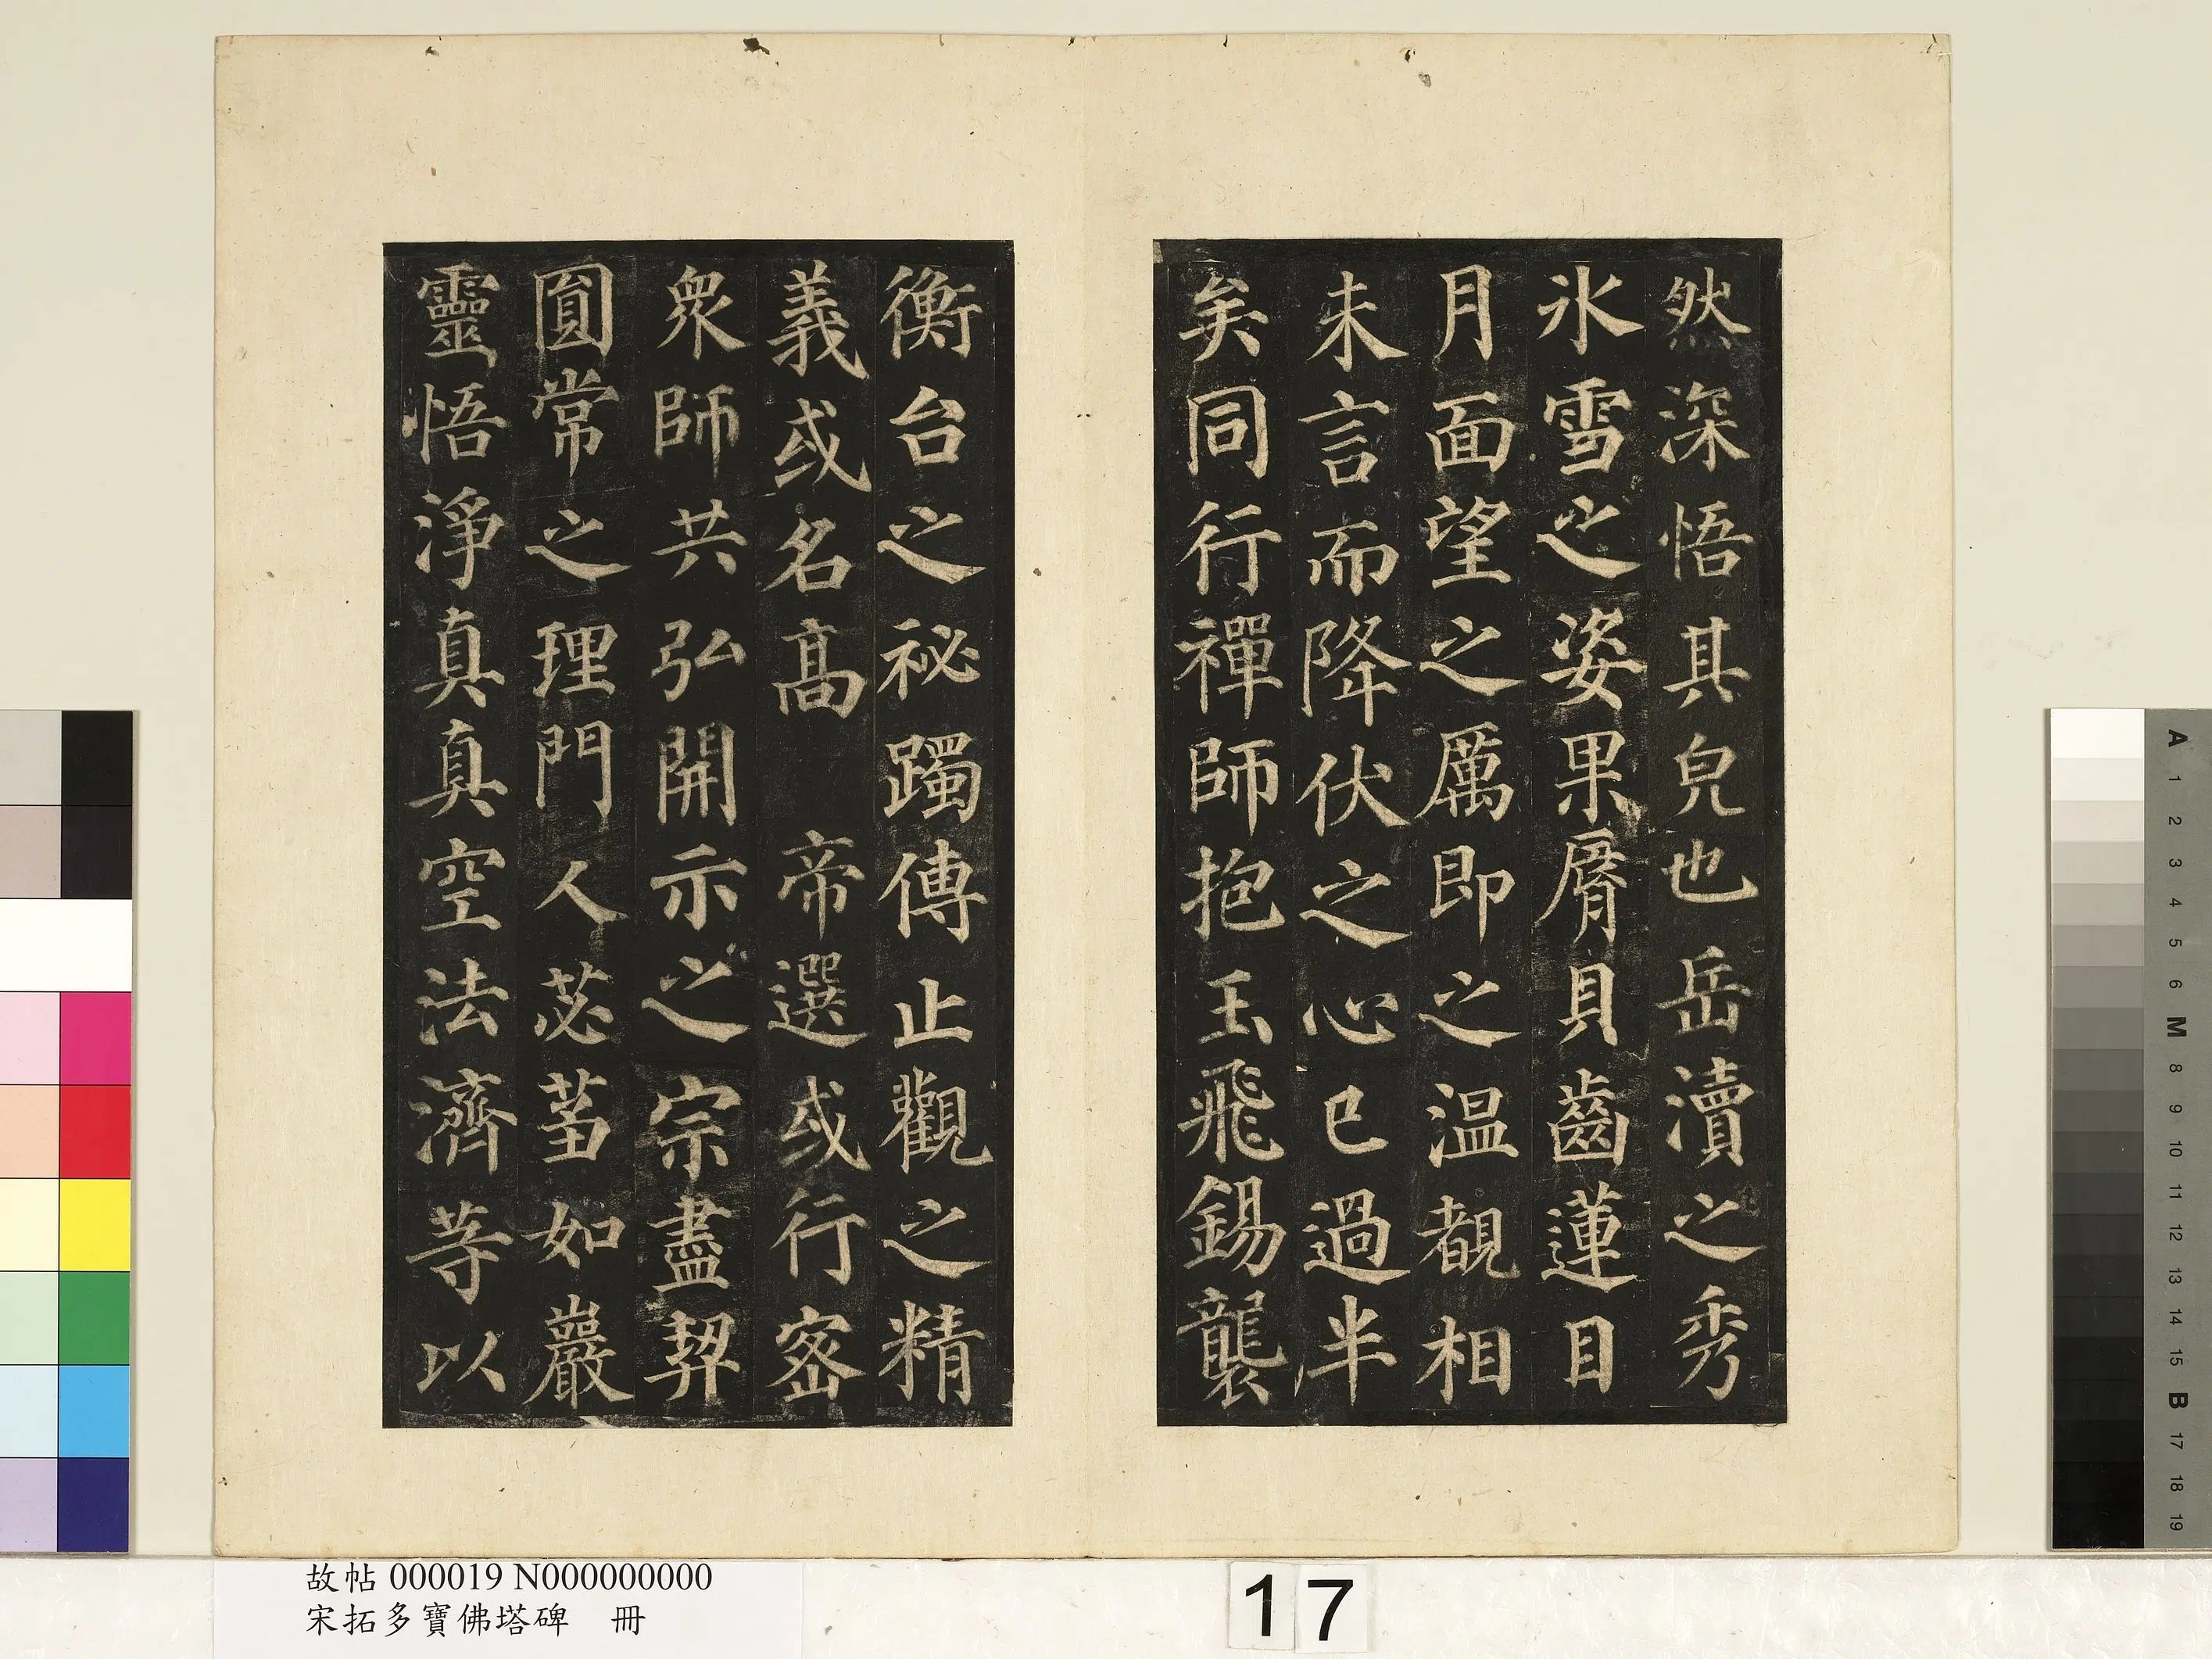 然深悟其皃也岳瀆之秀
氷雪之姿果脣貝齒蓮目
月面望之厲即之温覩相
未言而降伏之心已過半
矣同行禪師抱玉飛錫襲
衡台之祕躅傳止觀之精
義或名髙 帝選或行密
衆師共弘開示之宗盡契
圎常之理門人苾蒭如巖
靈悟淨真真空法濟等以
故帖 000019 N000000000
宋拓多寶佛塔碑 冊
17
A
1
2
3
4
5
6
M
8
9
10
11
12
13
14
15
B
17
18
19